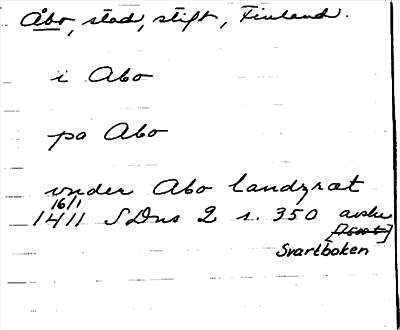 Åbo, stad, stift, Finland.
i Abo
pa Abo
vnder Abo landzræt
16/1
1411 SDns 2 s. 350 avskr
Svartboken